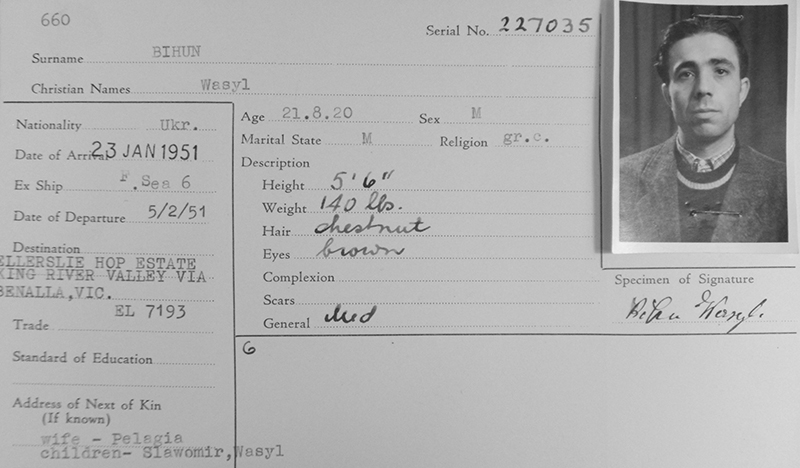 660
Serial No. 227035
Surname BIHUN
Christian Names Wasyl
Nationality Ukr.
Date of Arrival 23 JAN 1951
Ex Ship F. Sea 6
Date of Departure 5/2/51
Destination
ELLERSLIE HOP ESTATE
KING RIVER VALLEY VIA
BENALLA, VIC.
EL 7193
Trade
Standard of Education
Address of Next of Kin
(If known)
wife - Pelagia
children- Slawomir, Wasyl
Age 21.8.20 Sex M
Marital State M Religion gr.c.
Description
Height 5' 6"
Weight 140 lbs.
Hair chestnut
Eyes brown
Complexion
Scars
General Med
6
Specimen of Signature